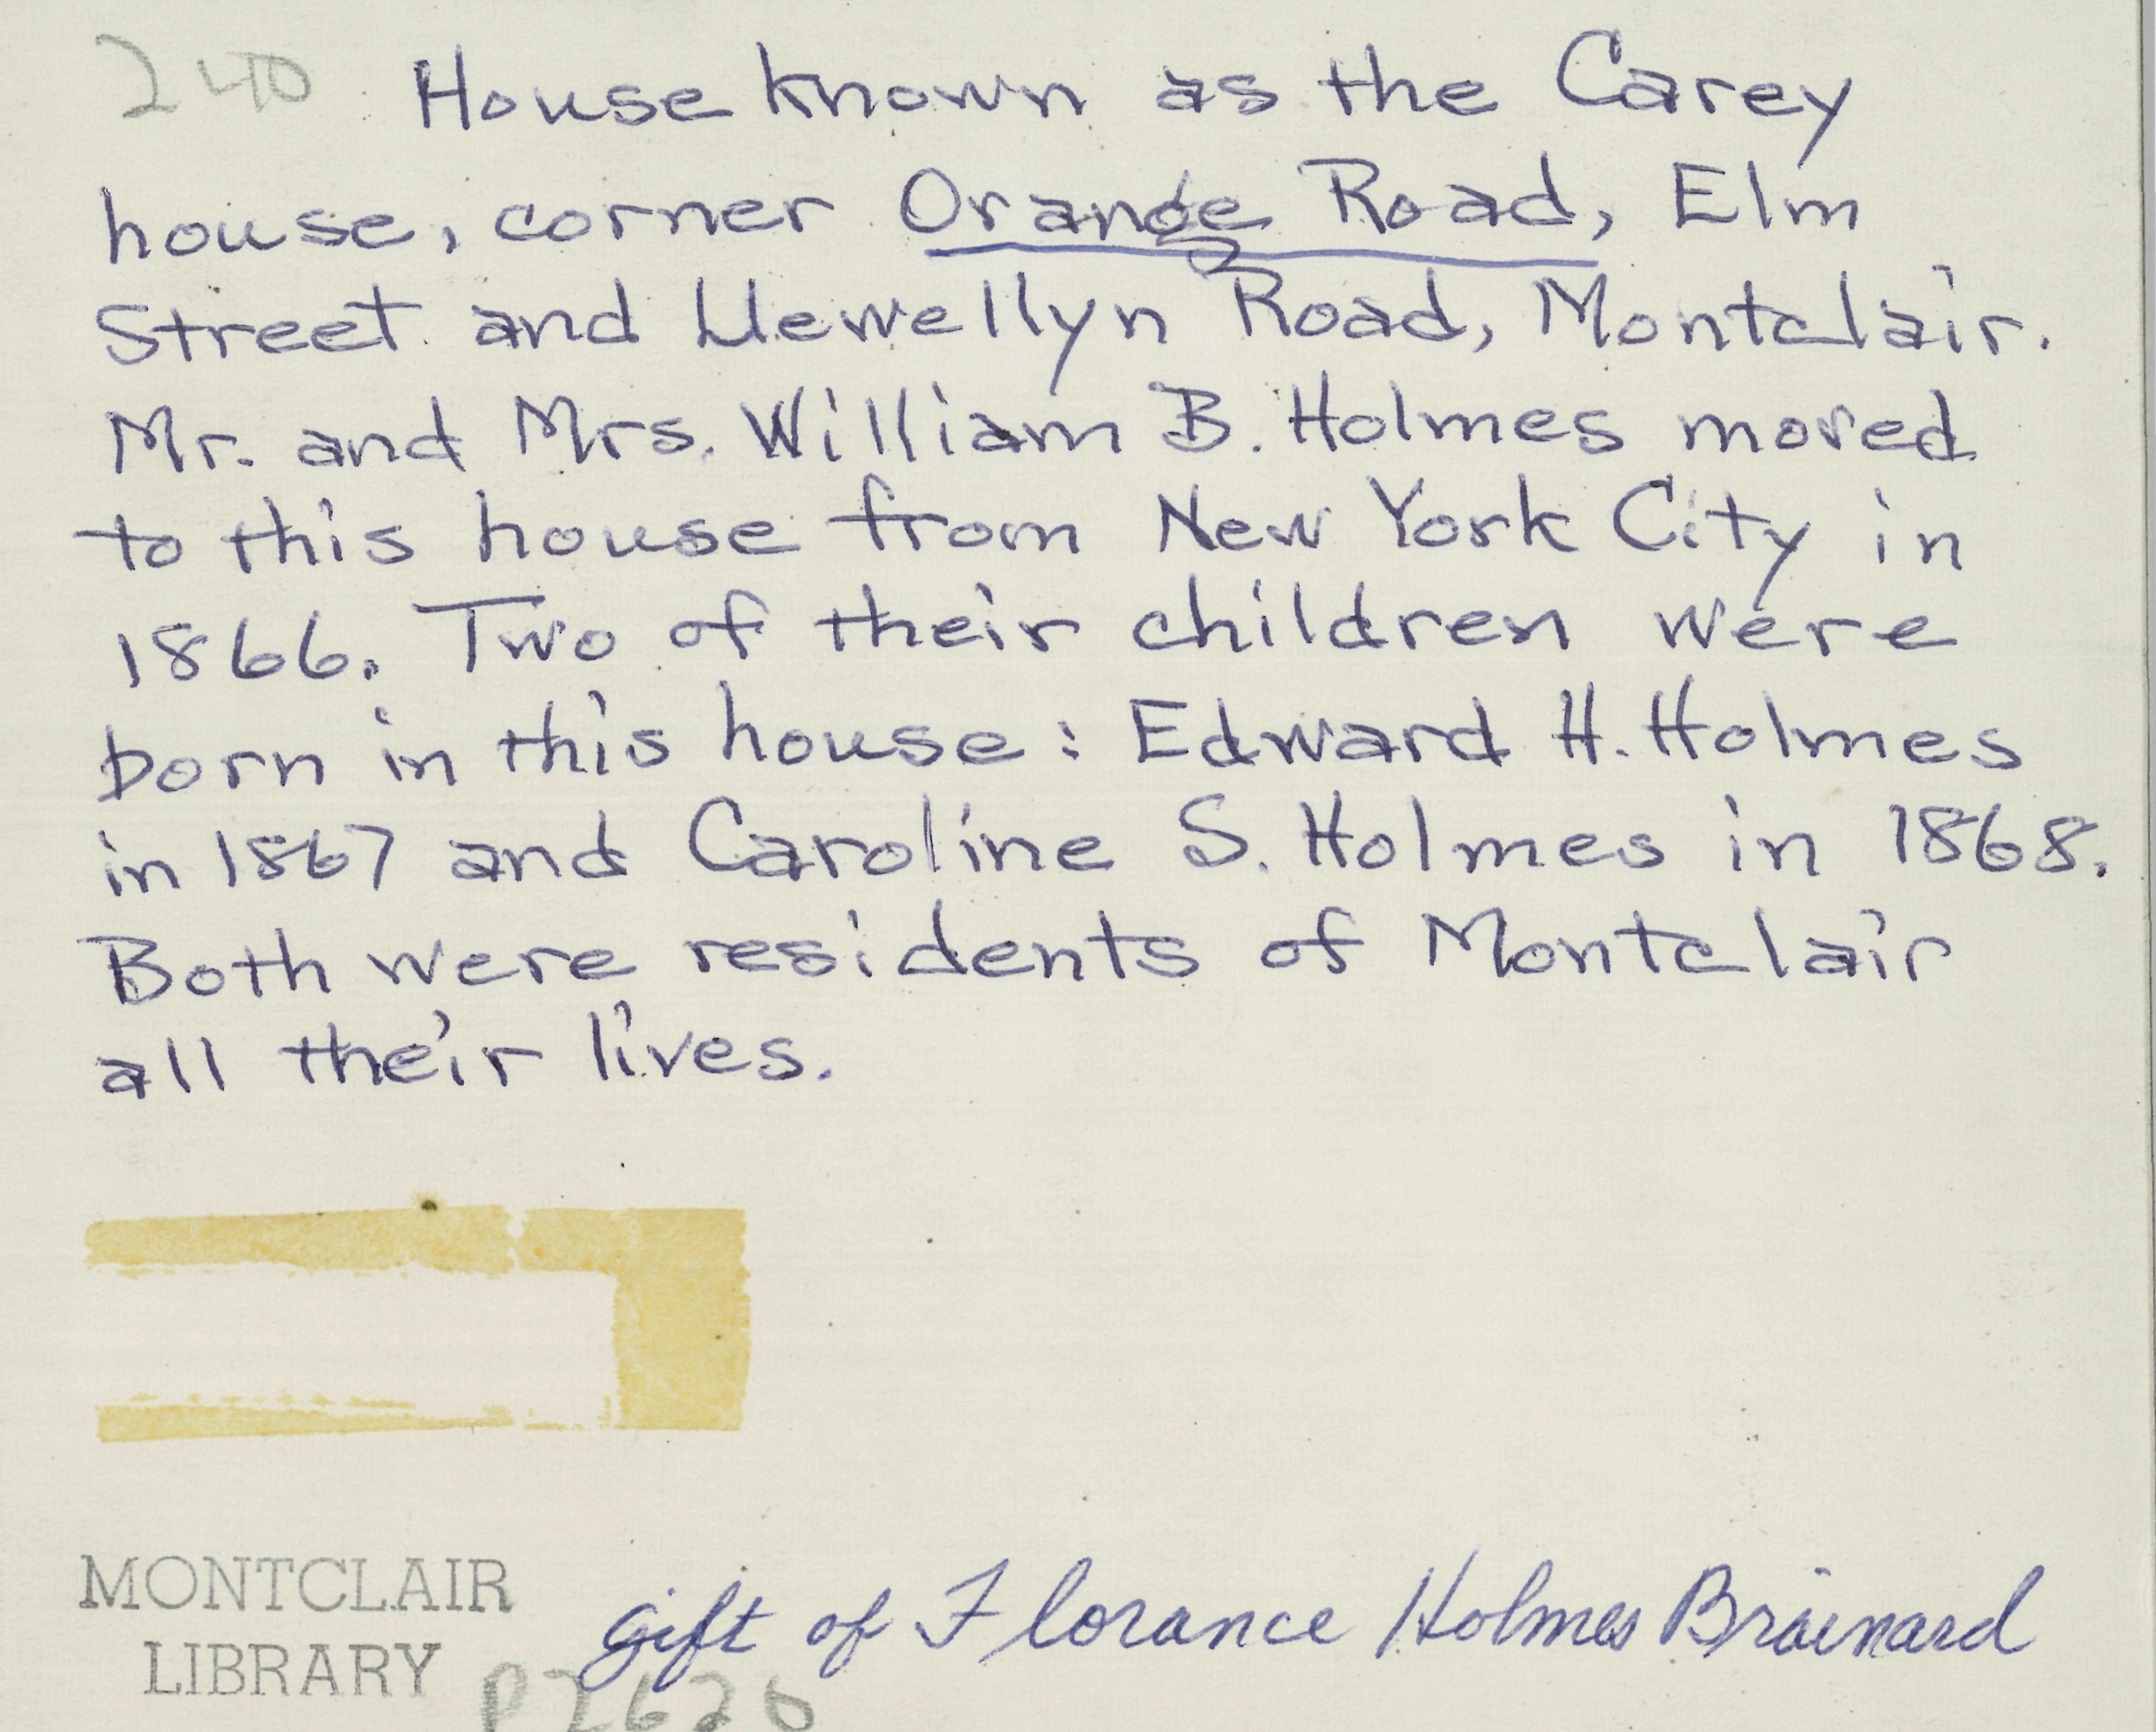 240 House known as the Carey
house, corner Orange Road, Elm
Street and Llewellyn Road, Montclair.
Mr. and Mrs. William B. Holmes moved
to this house from New York City in
1866. Two of their children were
born in this house: Edward H. Holmes
in 1867 and Caroline S. Holmes in 1868.
Both were residents of Montclair
all their lives.
MONTCLAIR
LIBRARY
gift of Florance Holmes Brainard
P2620